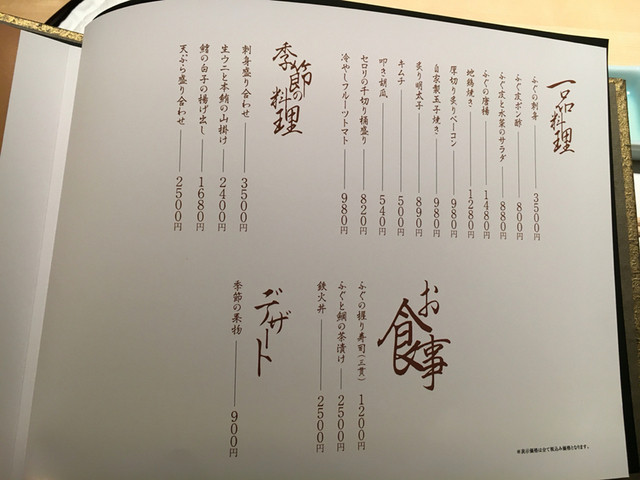 一品料理
ふぐの刺身 3500円
ふぐ皮ポン酢 800円
ふぐ皮と水菜のサラダ 880円
ふぐの唐揚 1480円
地鶏焼き 1280円
厚切り炙りベーコン 980円
自家製玉子焼き 980円
炙り明太子 890円
キムチ 500円
叩き胡瓜 540円
セロリの千切り桶盛り 820円
冷やしフルーツトマト 980円
季節の料理
刺身盛り合わせ 3500円
生ウニと本鮪の山掛け 2400円
鱈の白子の揚げ出し 1680円
天ぷら盛り合わせ 2500円
お食事
ふぐの握り寿司(三貫) 1200円
ふぐと鯛の茶漬け 2500円
鉄火丼 2500円
デザート
季節の果物 900円
※表示価格は全て税込み価格となります。